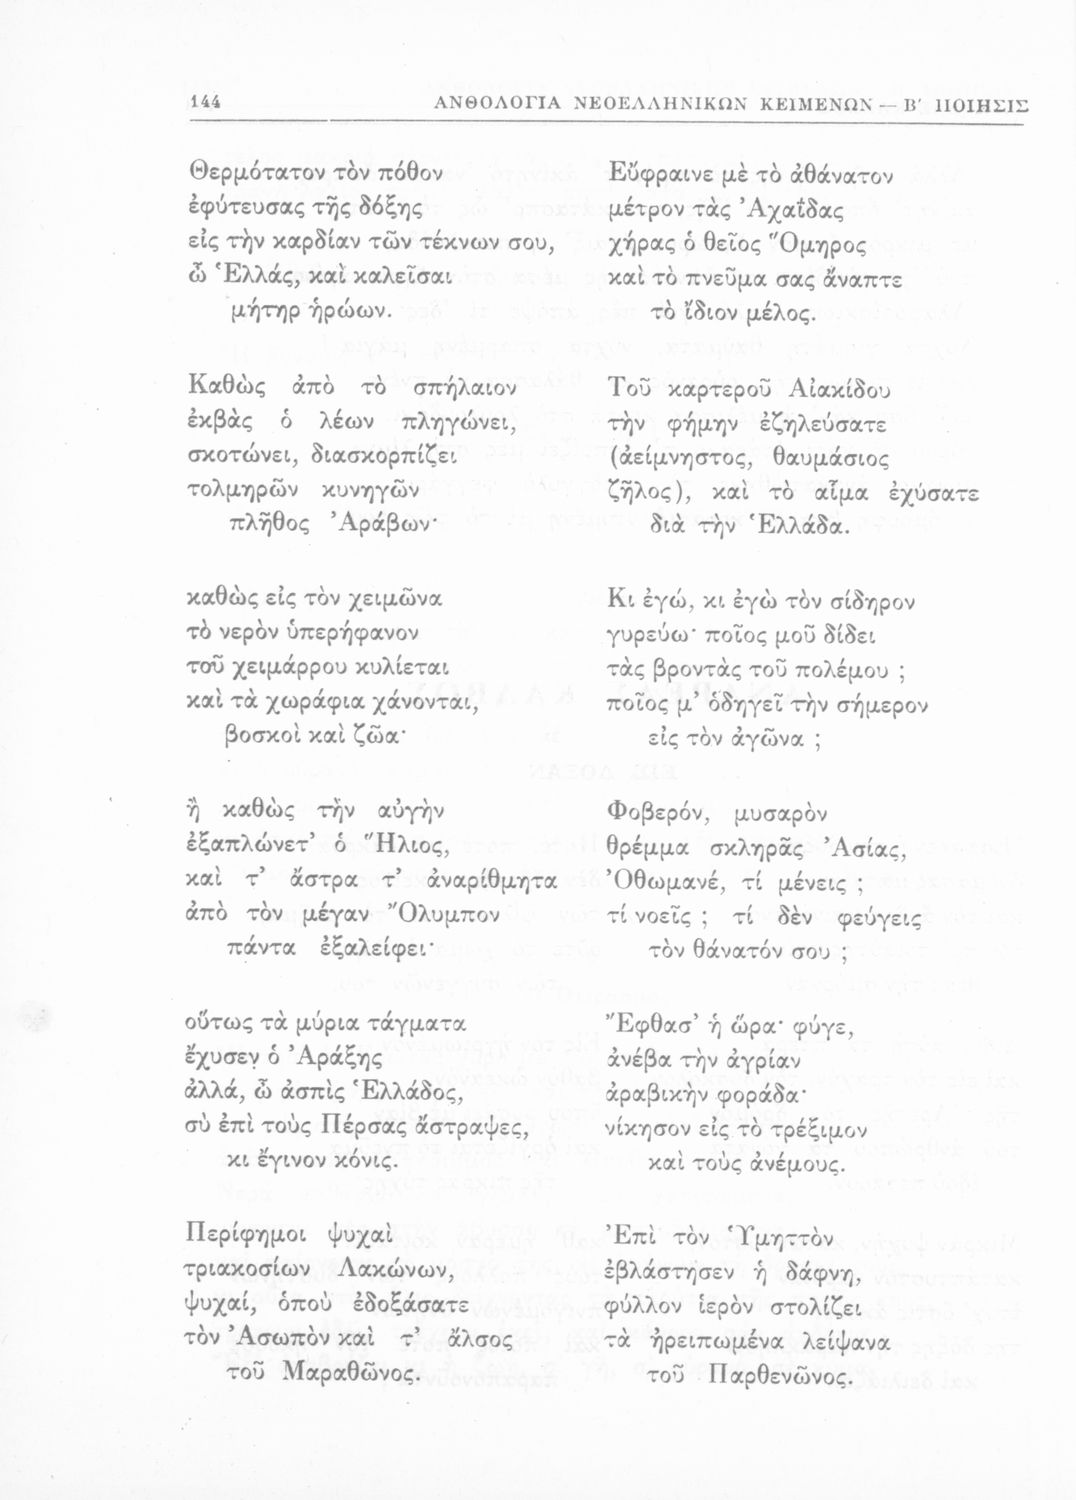 144
ΑΝΘΟΛΟΓΙΑ ΝΕΟΕΛΛΗΝΙΚΩΝ ΚΕΙΜΕΝΩΝ — Β′ ΠΟΙΗΣΙΣ
Θερμότατον τὸν πόθον
ἐφύτευσας τῆς δόξης
εἰς τὴν καρδίαν τῶν τέκνων σου,
ὦ Ἑλλάς, καὶ καλεῖσαι
μήτηρ ἡρώων.
Καθὼς ἀπὸ τὸ σπήλαιον
ἐκβὰς ὁ λέων πληγώνει,
σκοτώνει, διασκορπίζει
τολμηρῶν κυνηγῶν
πλῆθος Ἀράβων·
καθὼς εἰς τὸν χειμῶνα
τὸ νερὸν ὑπερήφανον
τοῦ χειμάρρου κυλίεται
καὶ τὰ χωράφια χάνονται,
βοσκοὶ καὶ ζῶα·
ἢ καθὼς τὴν αὐγὴν
ἐξαπλώνετ’ ὁ Ἥλιος,
καὶ τ’ ἄστρα τ’ ἀναρίθμητα
ἀπὸ τὸν μέγαν Ὄλυμπον
πάντα ἐξαλείφει·
οὕτως τὰ μύρια τάγματα
ἔχυσεν ὁ Ἀράξης
ἀλλά, ὦ ἀσπὶς Ἑλλάδος,
σὺ ἐπὶ τοὺς Πέρσας ἄστραψες,
κι ἔγινον κόνις.
Περίφημοι ψυχαὶ
τριακοσίων Λακώνων,
ψυχαί, ὁποὺ ἐδοξάσατε
τὸν Ἀσωπὸν καὶ τ’ ἄλσος
τοῦ Μαραθῶνος.
Εὔφραινε μὲ τὸ ἀθάνατον
μέτρον τὰς Ἀχαΐδας
χήρας ὁ θεῖος Ὅμηρος
καὶ τὸ πνεῦμα σας ἄναπτε
τὸ ἴδιον μέλος.
Τοῦ καρτεροῦ Αἰακίδου
τὴν φήμην ἐζηλεύσατε
(ἀείμνηστος, θαυμάσιος
ζῆλος), καὶ τὸ αἷμα ἐχύσατε
διὰ τὴν Ἑλλάδα.
Κι ἐγώ, κι ἐγὼ τὸν σίδηρον
γυρεύω· ποῖος μοῦ δίδει
τὰς βροντὰς τοῦ πολέμου ;
ποῖος μ’ ὁδηγεῖ τὴν σήμερον
εἰς τὸν ἀγῶνα ;
Φοβερόν, μυσαρὸν
θρέμμα σκληρᾶς Ἀσίας,
Ὀθωμανέ, τί μένεις ;
τί νοεῖς ; τί δὲν φεύγεις
τὸν θάνατόν σου ;
Ἔφθασ’ ἡ ὥρα· φύγε,
ἀνέβα τὴν ἀγρίαν
ἀραβικὴν φοράδα·
νίκησον εἰς τὸ τρέξιμον
καὶ τοὺς ἀνέμους.
Ἐπὶ τὸν Ὑμηττὸν
ἐβλάστησεν ἡ δάφνη,
φύλλον ἱερὸν στολίζει
τὰ ἠρειπωμένα λείψανα
τοῦ Παρθενῶνος.